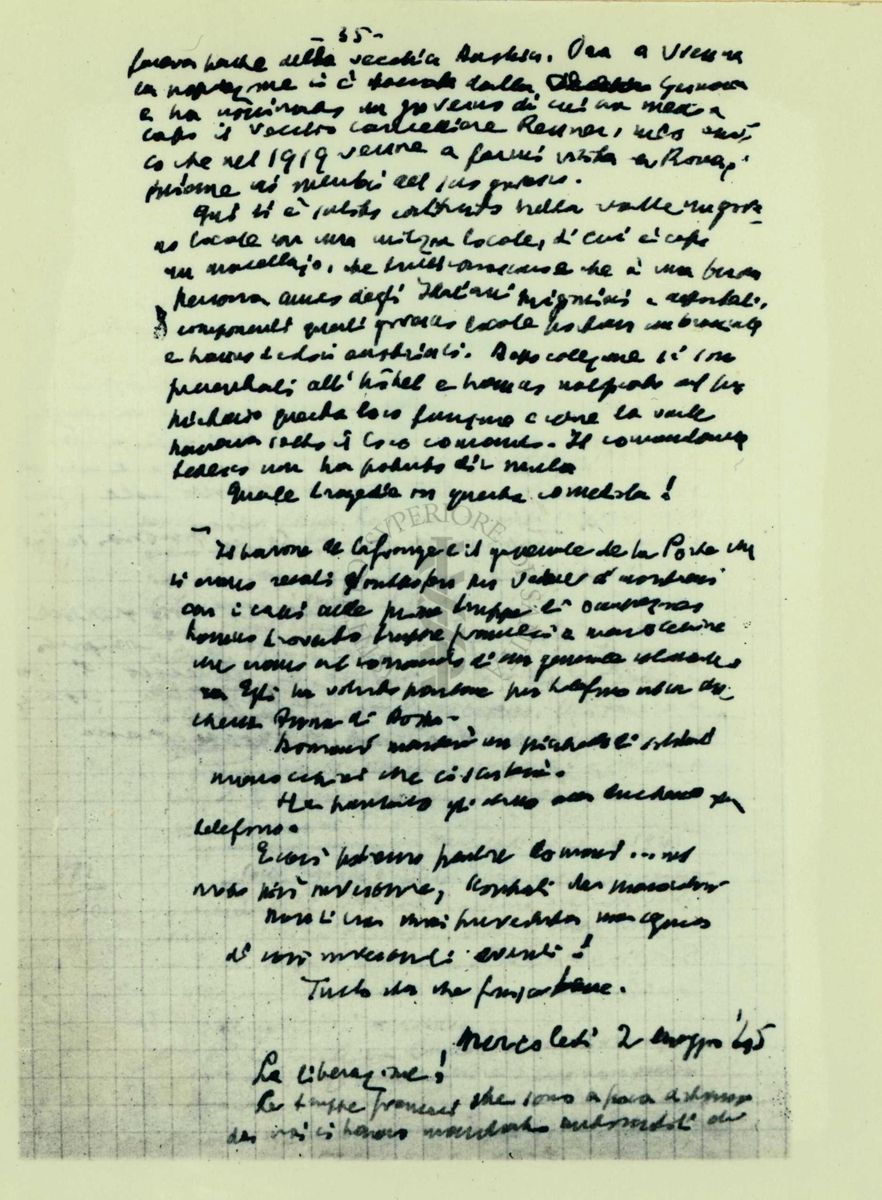 35-
faceva parte della vecchia Austria. Ora a Vienna
la popolazione si è
e ha nominato un governo di cui ha messo a
capo il vecchio cancelliere Renner, mio ami-
co che nel 1919 venne a farmi visita a Roma,
insieme ai membri del suo governo.
Qui si è subito costituito nella valle un gover-
no locale con una milizia locale, di cui è capo
un macellajo, che tutti conoscono e che è una buona
persona amico degli Italiani prigionieri e deportati.
I componenti questo governo locale portano un bracciale
e hanno i colori austriaci. Dopo colazione si son
presentati all'hôtel e hanno notificato
questa loro funzione e come la valle
sotto il loro comando. Il comandante
tedesco non ha potuto dir nulla
Quale tragedia in questa comedia!
Il barone de Lafrange e il generale de la Porte che
si erano recati per vedere di
con i capi delle prime truppe di
hanno trovato truppe francesi e marocchine
che erano al comando di un generale
Egli ha voluto parlare per telefono con la du-
chessa Anna di Aosta.
Domani manderà un picchetto di soldati
marocchini che ci scorterà.
Ha parlato gli stesso con duchessa per
telefono.
E così potremo partire domani ... nel
modo più inverosimile, scortati dai marocchini
Non si era mai preveduta una
di così inverosimili eventi!
Tutto sta che finisca bene.
Mercoledì 2 maggio '45
La liberazione!
Le truppe francesi che sono a poca distanza
da noi ci hanno mandato
SVPERIORE